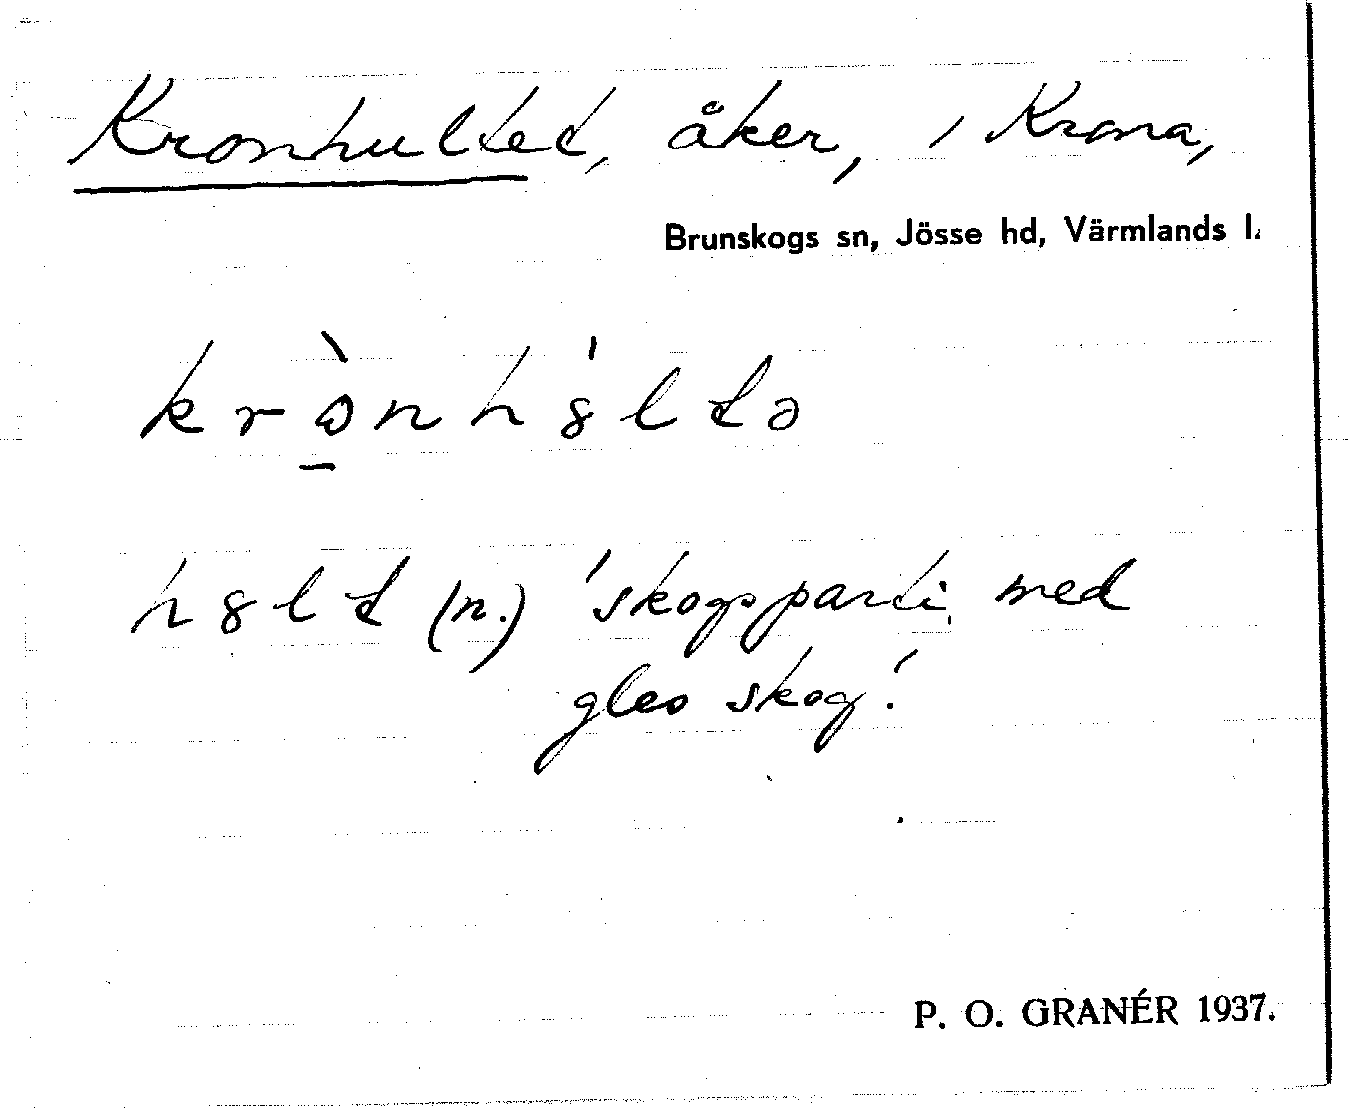 Kronhultet, åker, i Krona,
Brunskogs sn, Jösse hd, Värmlands l.
hult (n.) 'skogsparti med
gles skog'.
P. O. GRANÉR 1937.